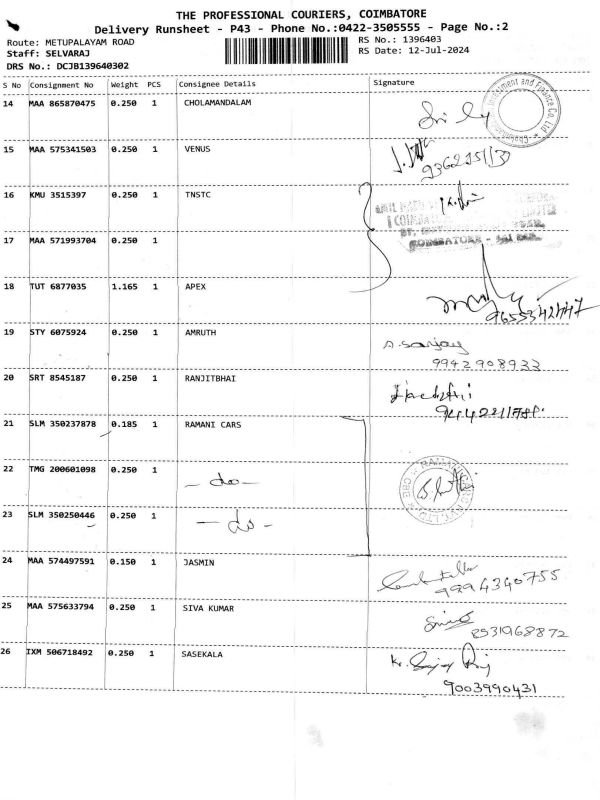 THE PROFESSIONAL COURIERS, COIMBATORE
Delivery Runsheet - P43 - Phone No.:0422-3505555 - Page No.:2
Route: METUPALAYAM ROAD RS No.: 1396403
Staff: SELVARAJ RS Date: 12-Jul-2024
DRS No.: DCJB139640302
S No Consignment No Weight PCS Consignee Details Signature
14 MAA 865870475 0.250 1 CHOLAMANDALAM
15 MAA 575341503 0.250 1 VENUS
16 KMU 3515397 0.250 1 TNSTC
17 MAA 571993704 0.250 1
18 TUT 6877035 1.165 1 APEX
9655342447
19 STY 6075924 0.250 1 AMRUTH
S.Sanjay
9942908933
20 SRT 8545187 0.250 1 RANJITBHAI
21 SLM 350237878 0.185 1 RAMANI CARS
22 TMG 200601098 0.250 1 - do -
23 SLM 350250446 0.250 1 - do -
24 MAA 574497591 0.150 1 JASMIN
9994340755
25 MAA 575633794 0.250 1 SIVA KUMAR
8531968872
26 IXM 506718492 0.250 1 SASEKALA
9003990431